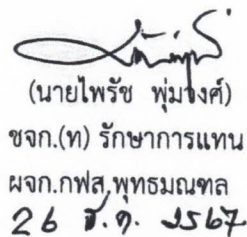 (นายไพรัช พุ่มวงศ์)
ชจก.(ท) รักษาการแทน
ผจก.กฟส.พุทธมณฑล
26 ธ.ค. 2567